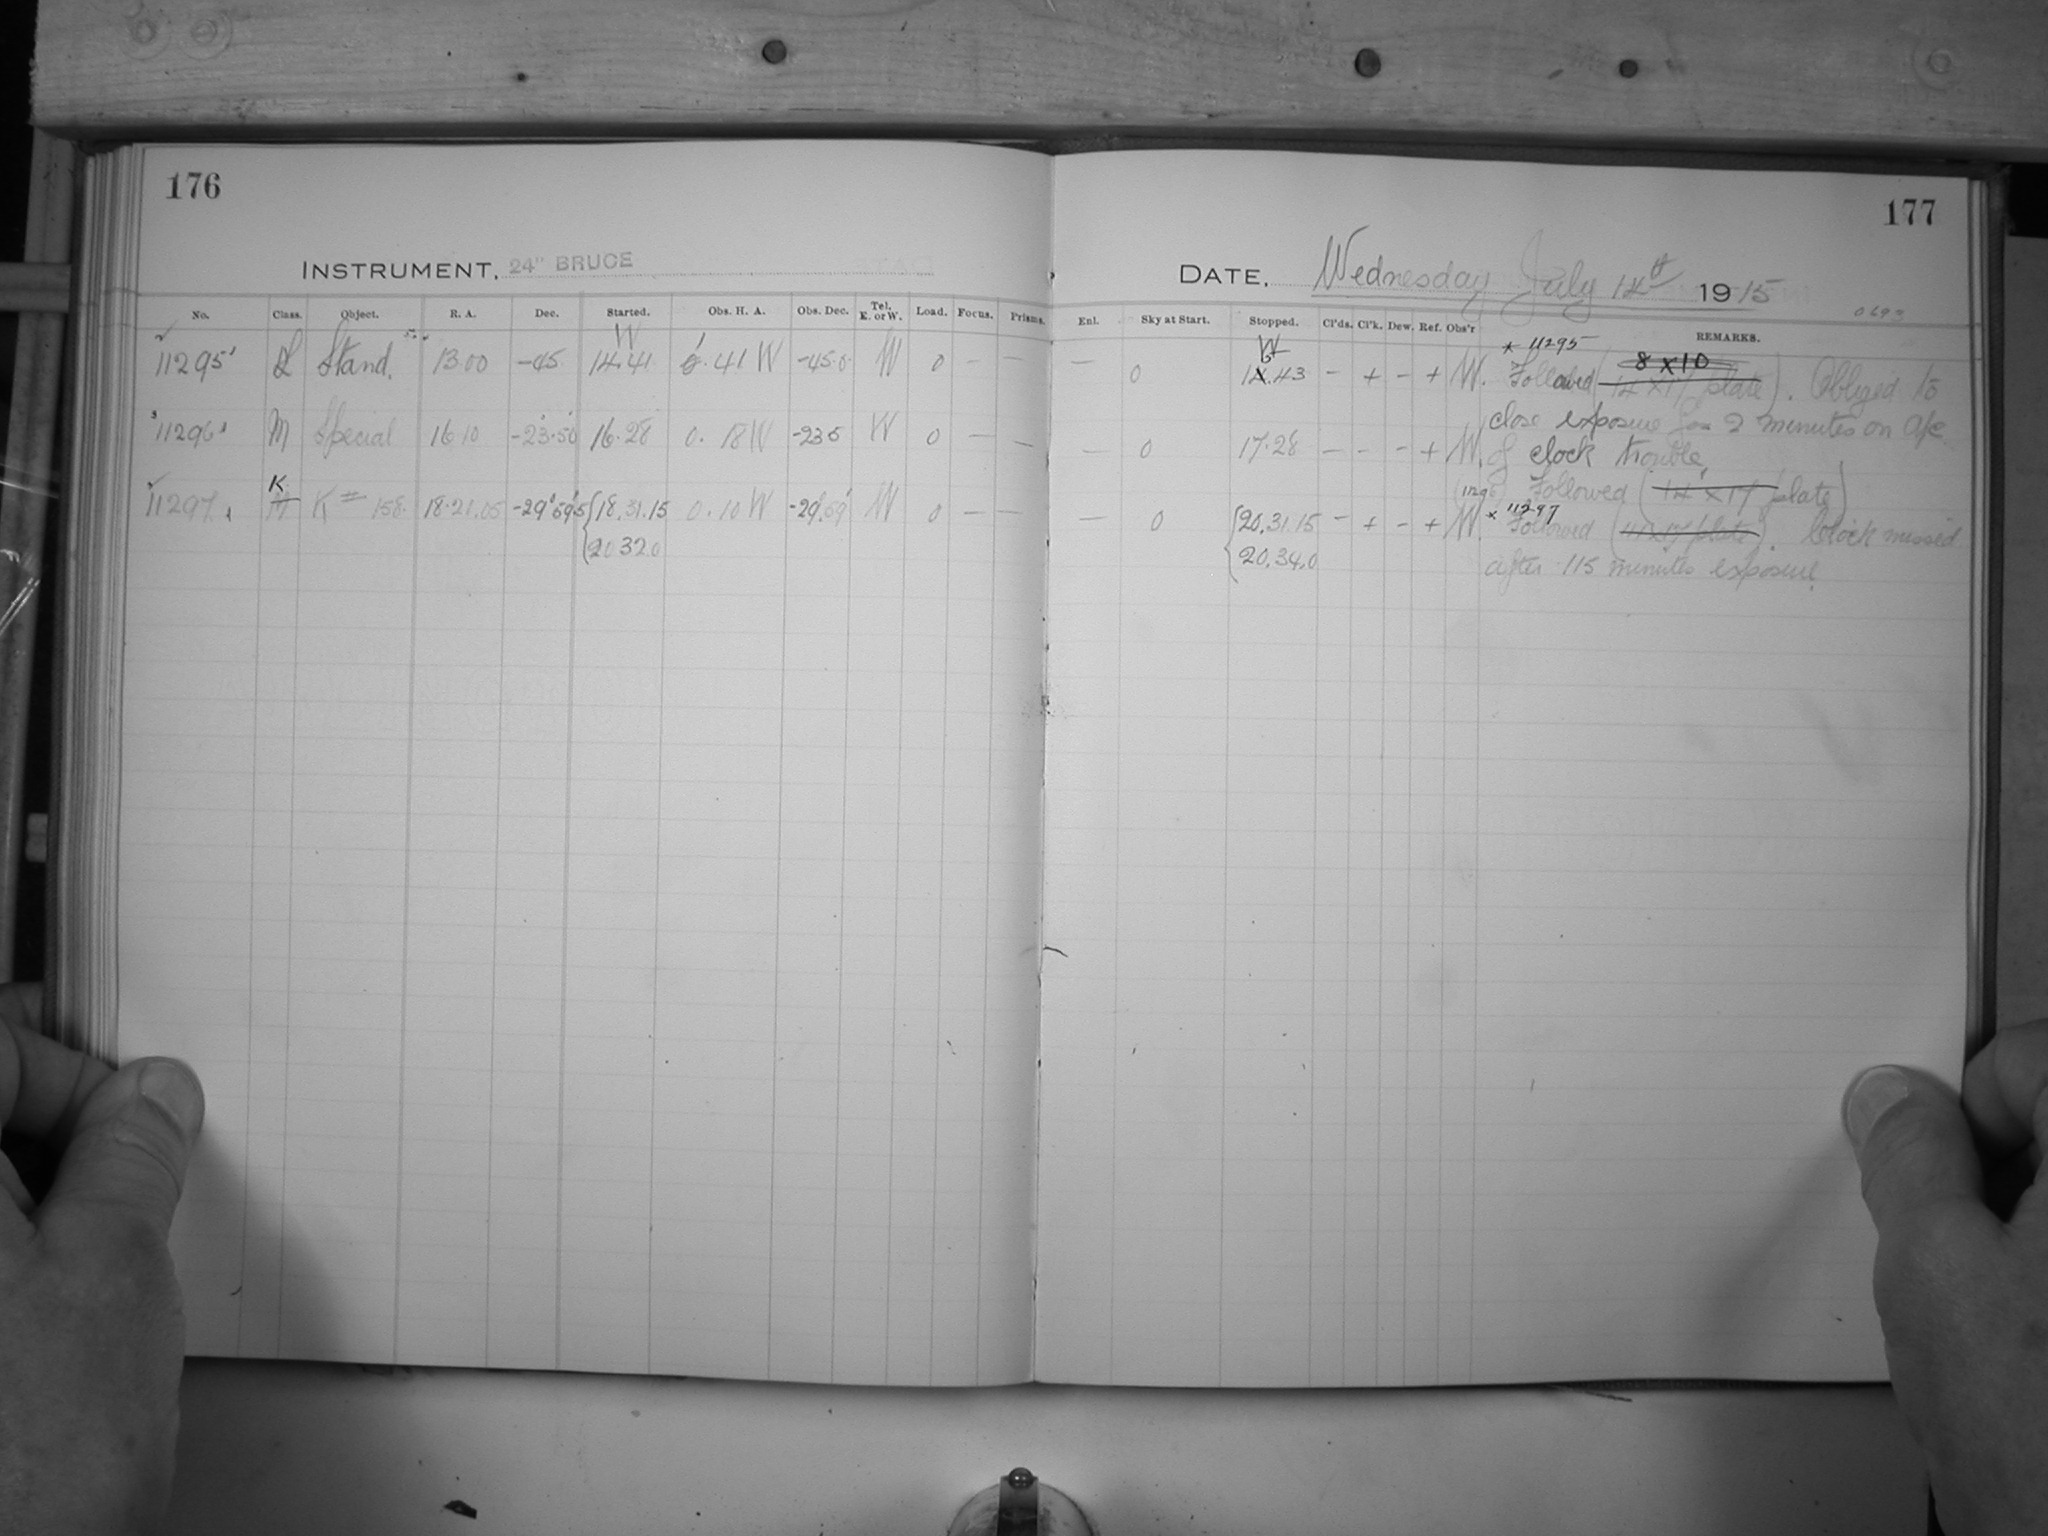 176
INSTRUMENT, 24" BRUCE
No. Class. Object. R. A. Dec. Started. Obs. H. A. Obs. Dec. Tel. E. or W. Load. Focus. Prisms.
W
11295 L Stand. 13.00 -45 14.41 1.41 W -45.0 W 0 - -
11296 M Special 16.10 -23.50 16.28 0.18 W -23 5 W 0 - -
K
11297 M K # 158 18.21.05 -29°59'5 18.31.15 0.10 W -29.59 W 0 - -
20 32 0
177
DATE, Wednesday July 14th 1915
Enl. Sky at Start. Stopped. Cl'ds. Cl'k. Dew. Ref. Obs'r REMARKS.
W * 11295 8 x 10
- 0 .43 - + - + W. Followed (14 x 17 plate). Obliged to
close exposure for 2 minutes on a/c
- 0 17.28 - - - + W. of clock trouble.
(11296) Followed (14 x 17 plate)
- 0 20.31.15 - + - + W. * 11297 Followed (14 x 17 plate). Clock missed
20.34.0 after 115 minutes exposure.